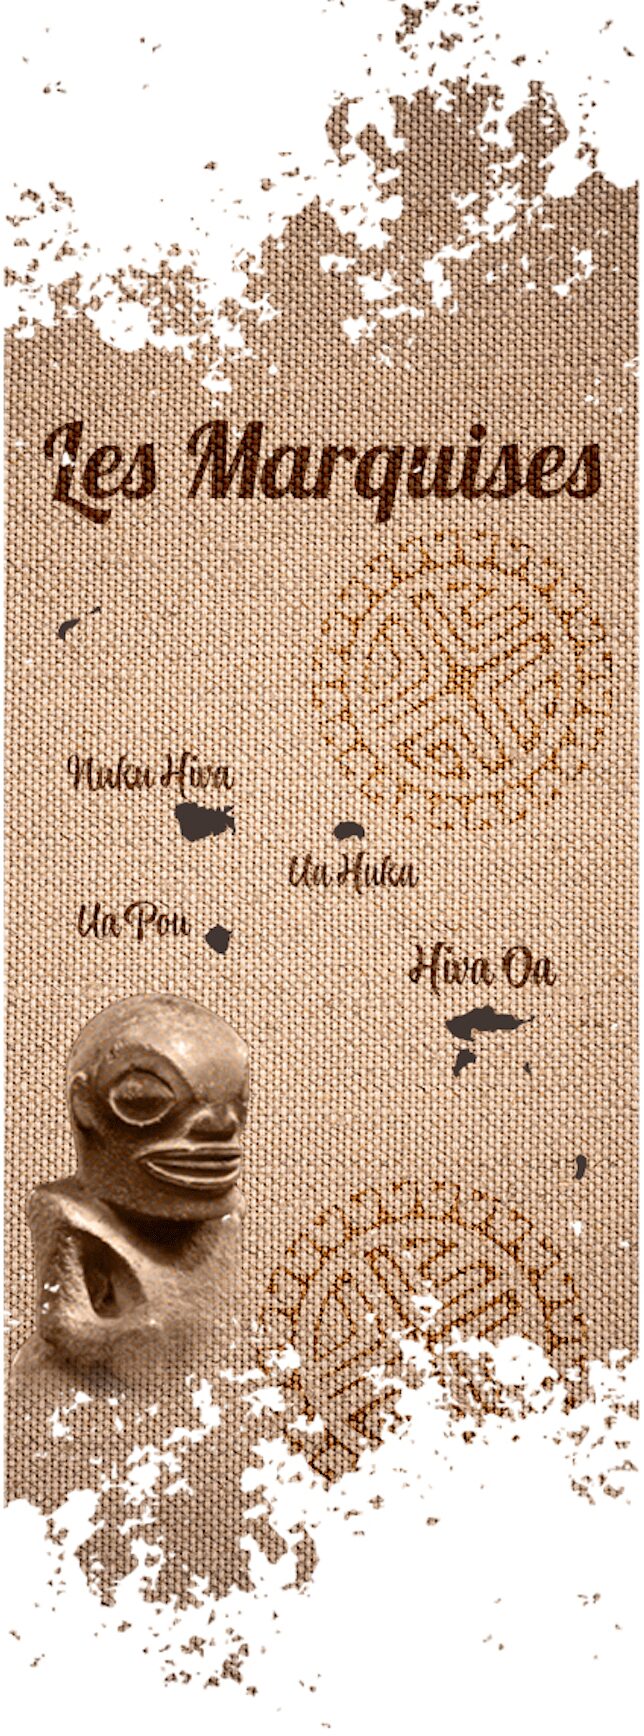 Les Marquises
Nuku Hiva
Ua Huka
Ua Pou
Hiva Oa